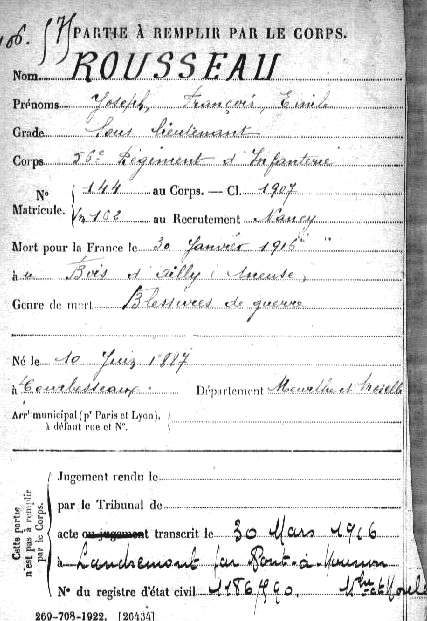 106. (7)
PARTIE À REMPLIR PAR LE CORPS.
Nom ROUSSEAU
Prénoms Joseph, François, Emile
Grade Sous lieutenant
Corps 56e Régiment d'Infanterie
N° Matricule. 144 au Corps. — Cl. 1907
102 au Recrutement Nancy
Mort pour la France le 30 Janvier 1916
à Bois d'Ailly (Meuse)
Genre de mort Blessures de guerre
Né le 10 Juin 1887
à Courbesseaux. Département Meurthe et Moselle
Arrt municipal (pr Paris et Lyon),
à défaut rue et N°.
Cette partie n'est pas à remplir par le Corps.
Jugement rendu le
par le Tribunal de
acte ou jugement transcrit le 30 Mars 1916
à Landremont par Pont-à-Mousson
N° du registre d'état civil 1186/990. Mthe et Moselle
269-708-1922. [26434]